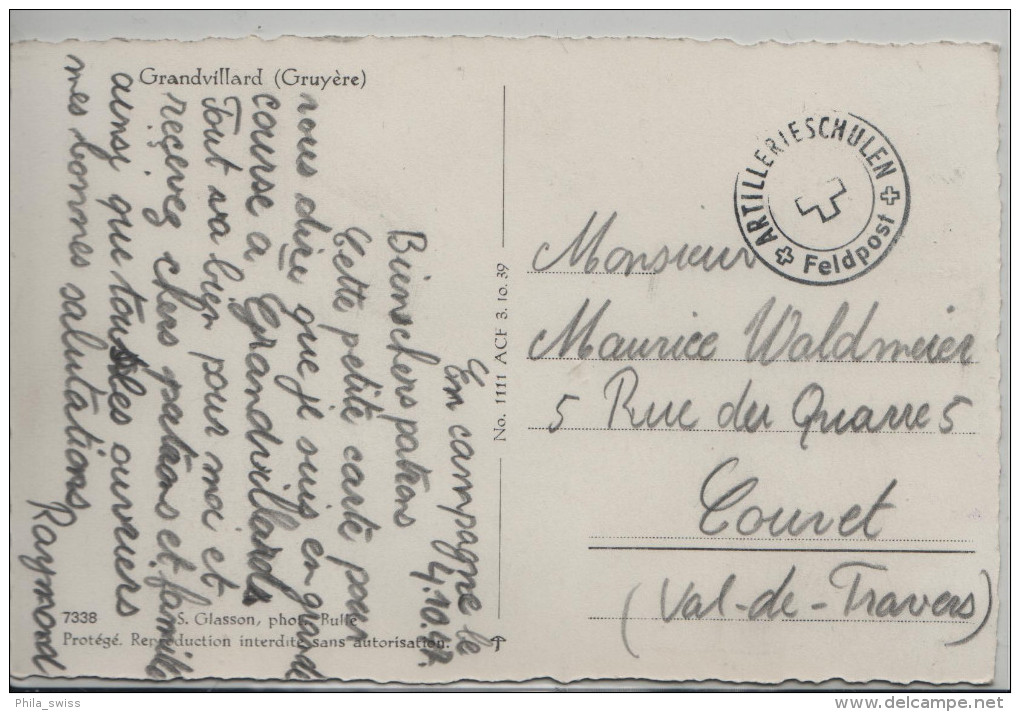 Grandvillard (Gruyère)
En campagne le
4.10.
Bien chers patrons
Cette petite carte pour
vous dire que je suis en grande
course a Grandvillard
Tout va bien pour moi et
recevez chers patrons et famille
ainsi que tous les ouvriers
mes bonnes salutations
Raymond
7338 S. Glasson, phot. Bulle
Protégé. Reproduction interdite sans autorisation.
No. 1111 ACF 3. 10. 39
ARTILLERIESCHULEN
Feldpost
Monsieur
Maurice Waldmeier
5 Rue du Quarre 5
Couvet
(Val-de-Travers)
Phila_swiss
www.delcampe.net